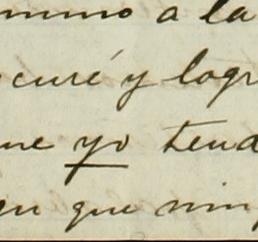 mino a la
ocuré y logr
ue yo tend
que nin